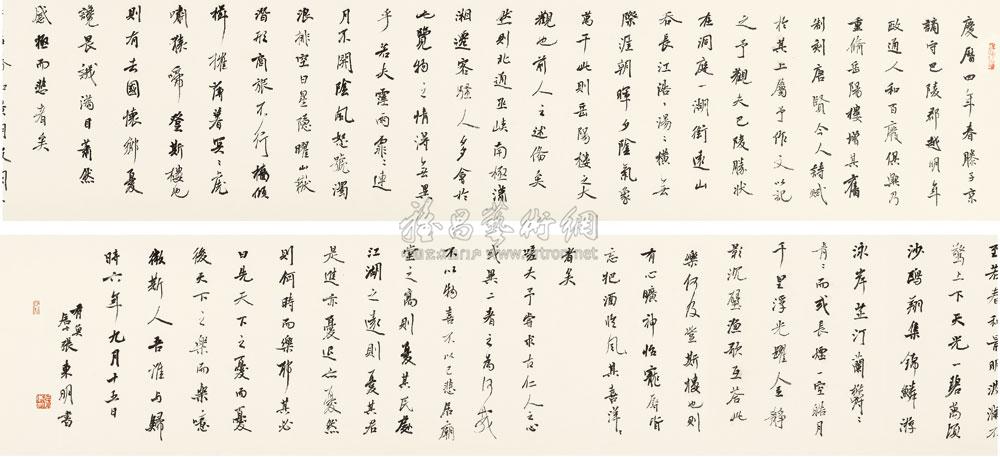 慶曆四年春滕子京
謫守巴陵郡越明年
政通人和百廢俱興乃
重脩岳陽樓增其舊
制刻唐賢今人詩賦
於其上屬予作文以記
之予觀夫巴陵勝狀
在洞庭一湖銜遠山
吞長江浩浩湯湯橫無
際涯朝暉夕陰氣象
萬千此則岳陽樓之大
觀也前人之述備矣
然則北通巫峽南極瀟
湘遷客騷人多會於
此覽物之情得無異
乎若夫霪雨霏霏連
月不開陰風怒號濁
浪排空日星隱曜山嶽
潛形商旅不行檣傾
楫摧薄暮冥冥虎
嘯猿啼登斯樓也
則有去國懷鄉憂
讒畏譏滿目蕭然
感極而悲者矣
至若春和景明波瀾不
驚上下天光一碧萬頃
沙鷗翔集錦鱗游
泳岸芷汀蘭郁郁
青青而或長煙一空皓月
千里浮光躍金靜
影沉璧漁歌互答此
樂何及登斯樓也則
有心曠神怡寵辱皆
忘把酒臨風其喜洋洋
者矣
嗟夫予嘗求古仁人之心
或異二者之為何哉
不以物喜不以己悲居廟
堂之高則憂其民處
江湖之遠則憂其君
是進亦憂退亦憂然
則何時而樂耶其必
曰先天下之憂而憂
後天下之樂而樂噫
微斯人吾誰與歸
時六年九月十五日
張東明書